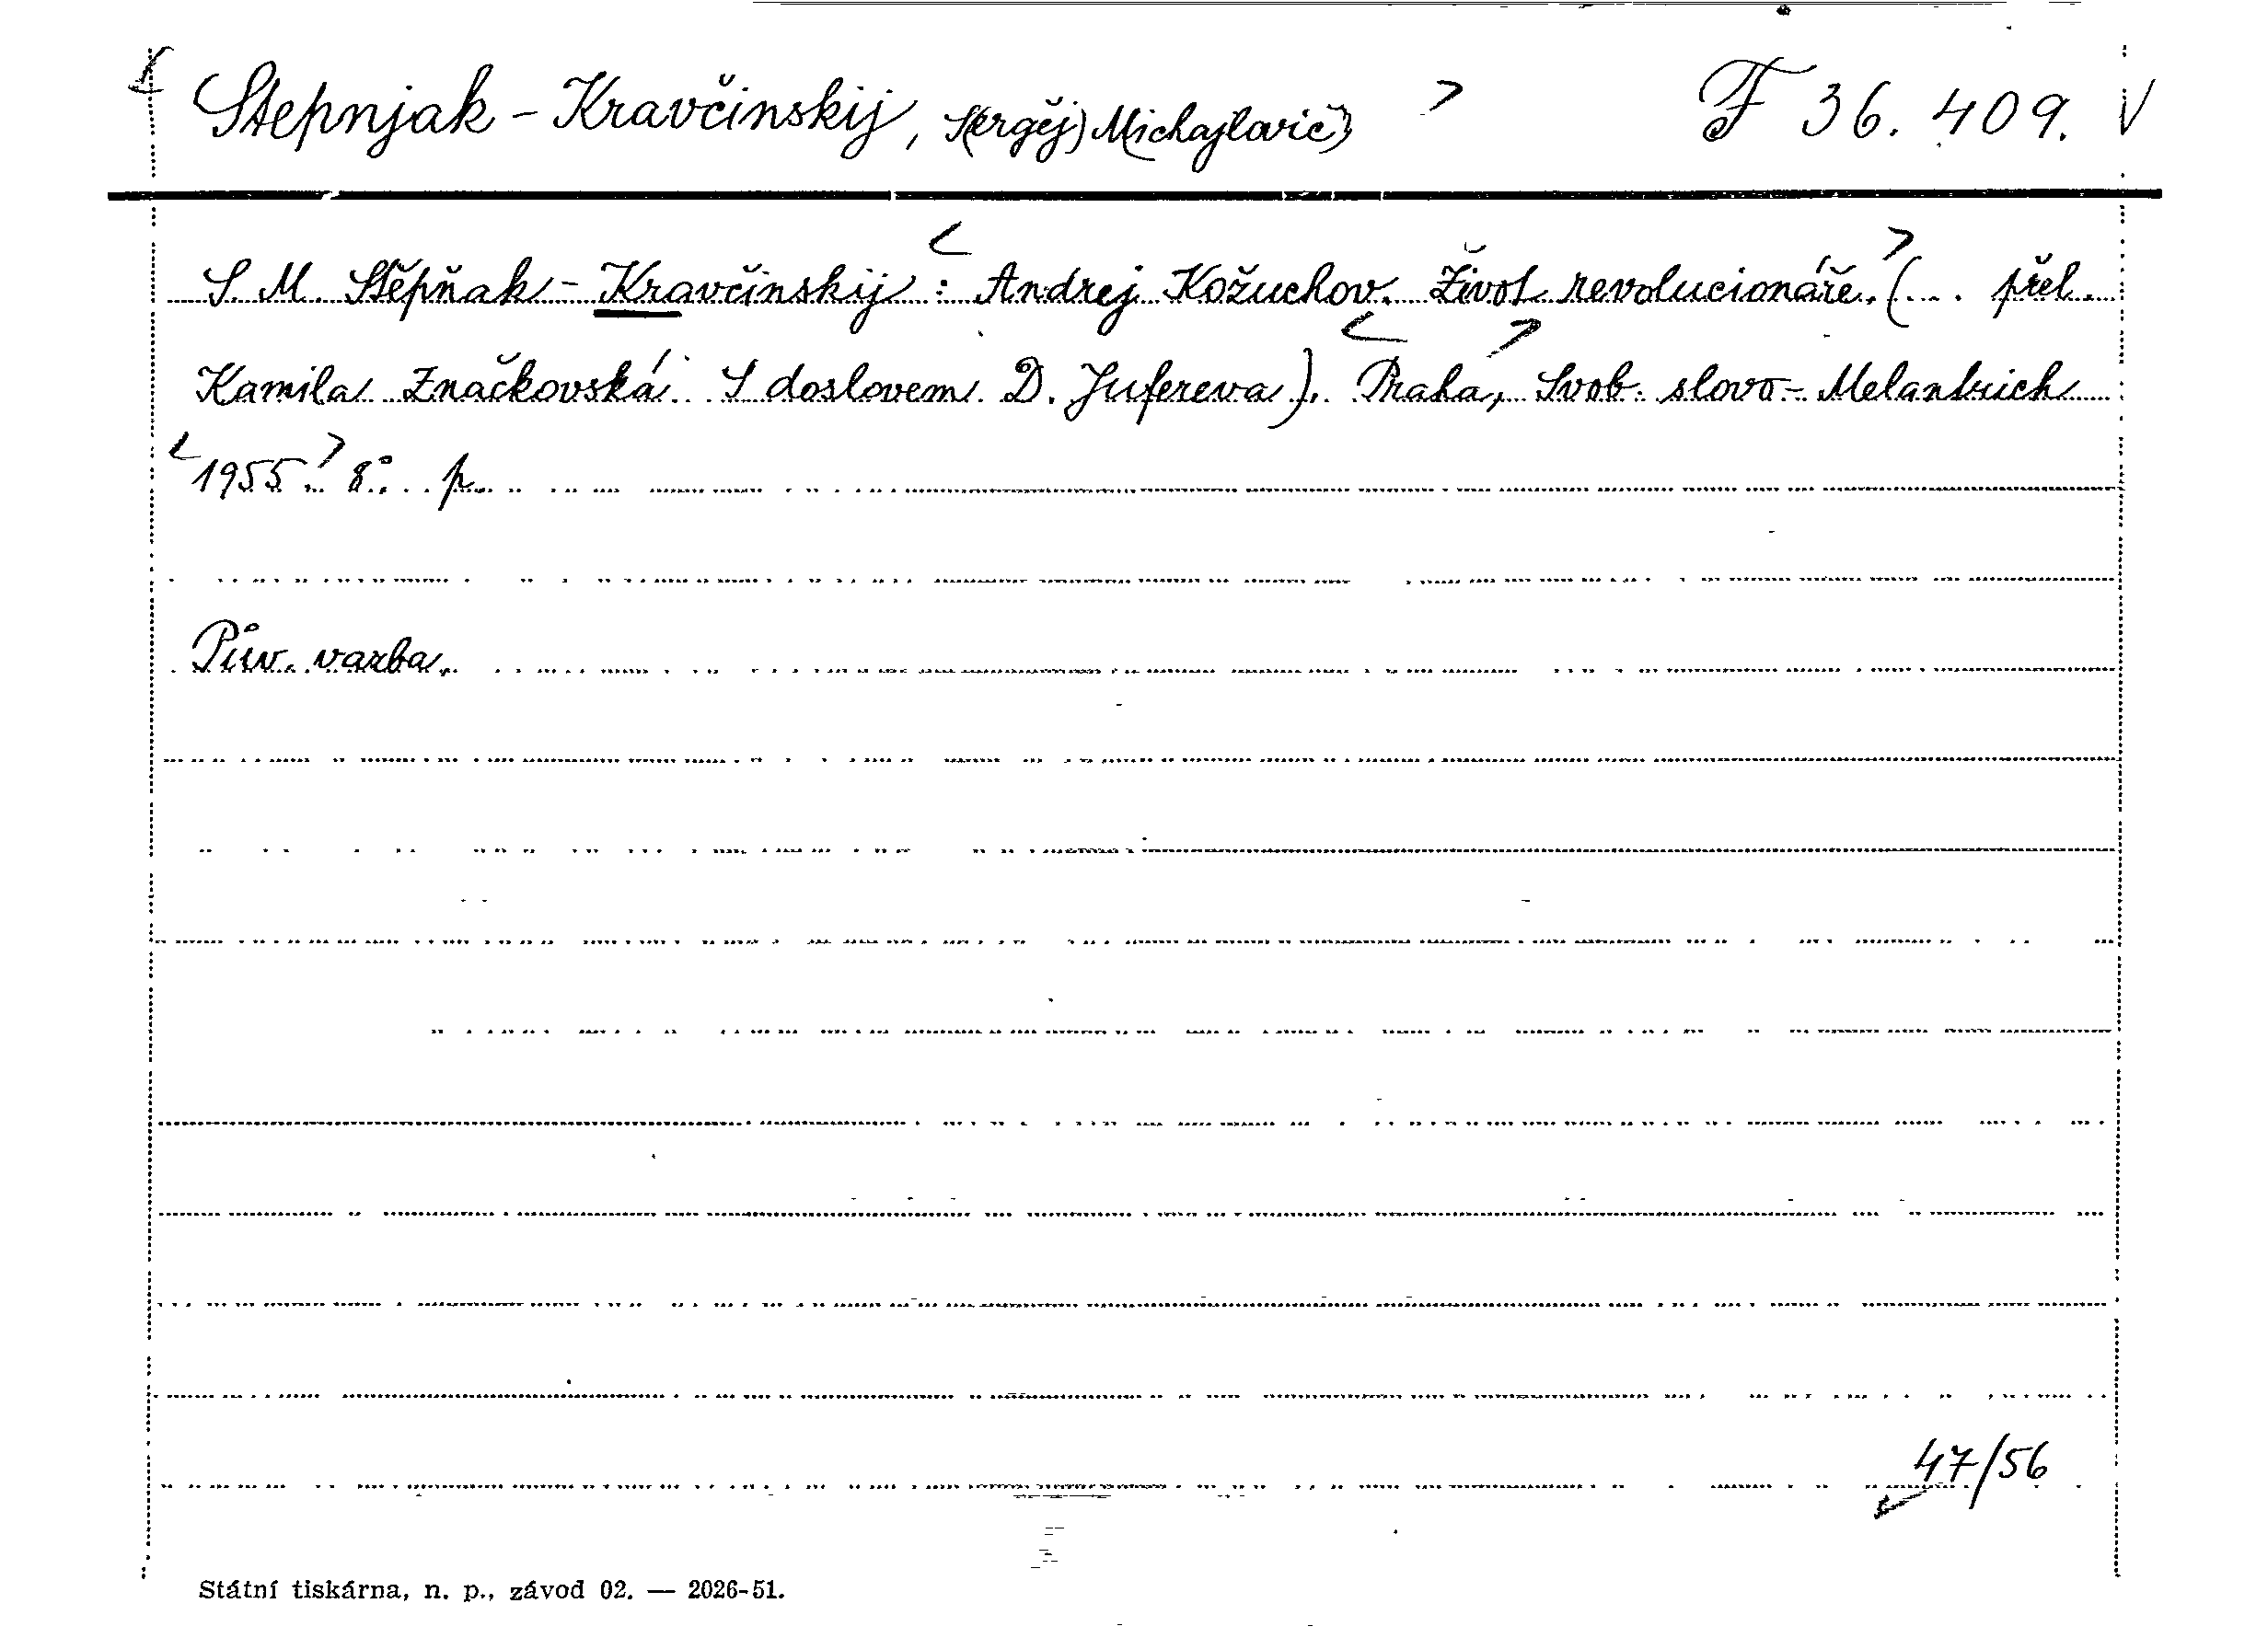 Stepnjak - Kravčinskij, S(ergěj) Michajlovič) F 36.409.
S. M. Stěpňak - Kravčinskij : Andrej Kožuchov. Život revolucionáře. (... přel.
Kamila Značkovská. S doslovem D. Jufereva). Praha, Svob. slovo - Melantrich
1955. 8°. p.
Pův. vazba.
47/56
Státní tiskárna, n. p., závod 02. — 2026-51.